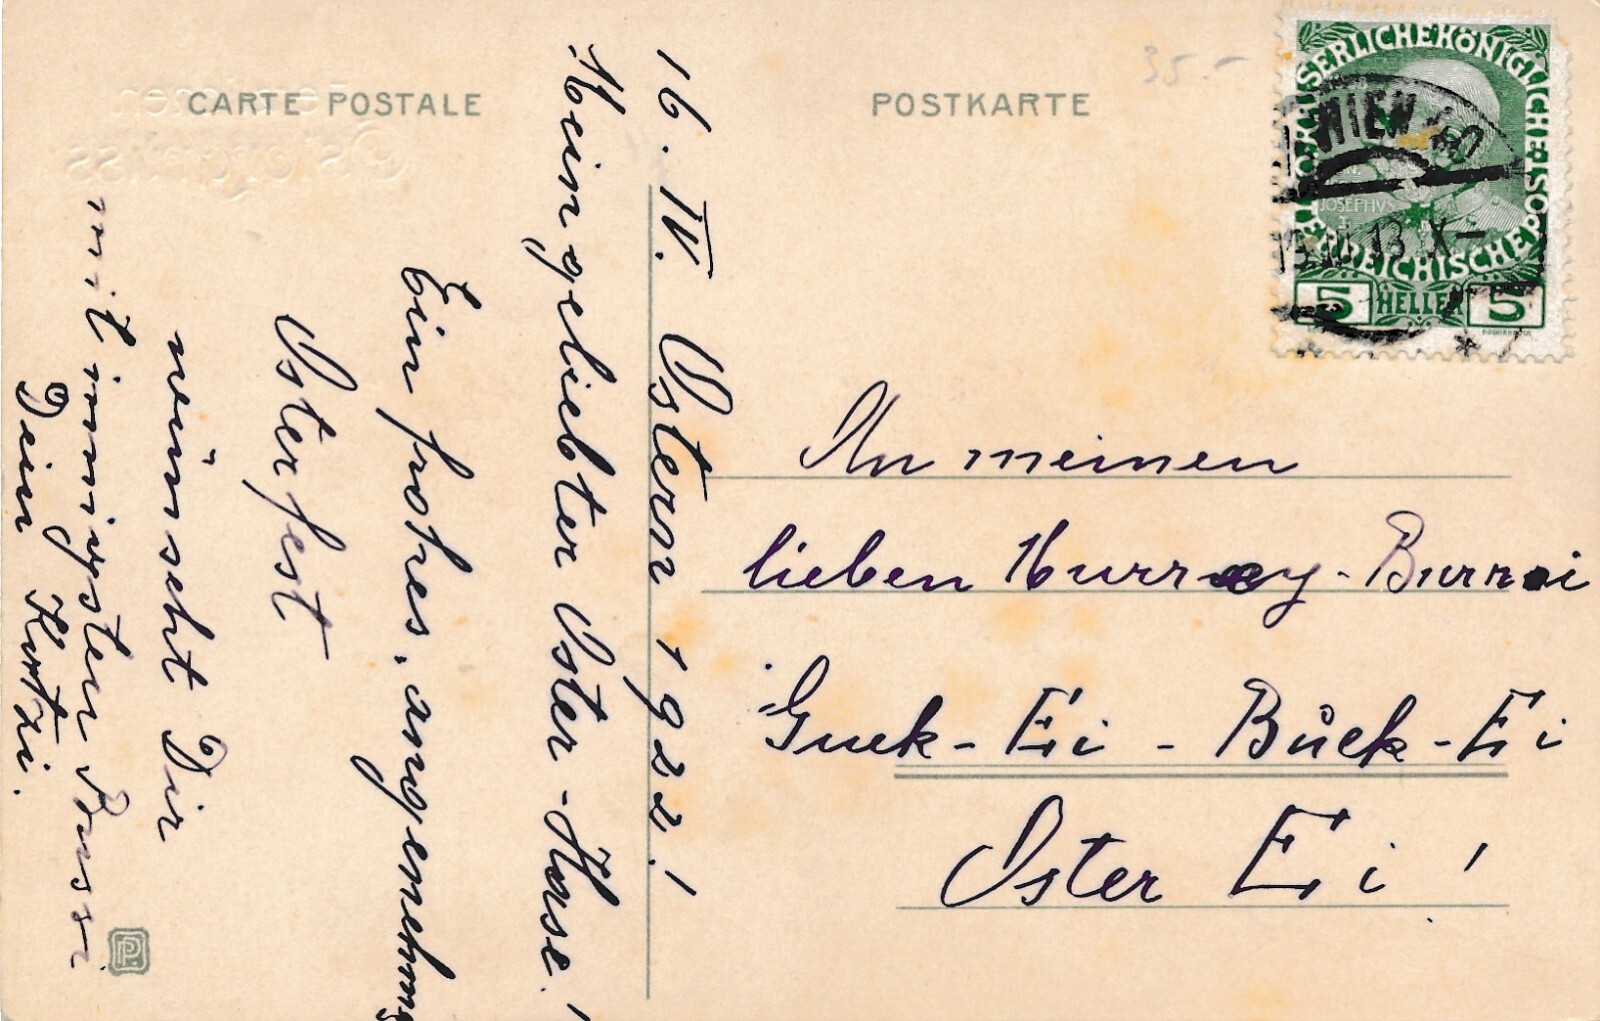 CARTE POSTALE
POSTKARTE
35.-
KAISERLICHE KÖNIGLICHE
ÖSTERREICHISCHE POST
JOSEPHVS
5 HELLER 5
WIEN
13
16. IV. Ostern 1922!
Meingeliebter Oster-Hase!
Ein frohes, angenehmes
Osterfest
wünscht Dir
mit innigsten Bussi
Dein Kurtzi.
An meinen
lieben Murray-Burri
Guck-Ei-Bůck-Ei
Oster Ei!
Ostergruss